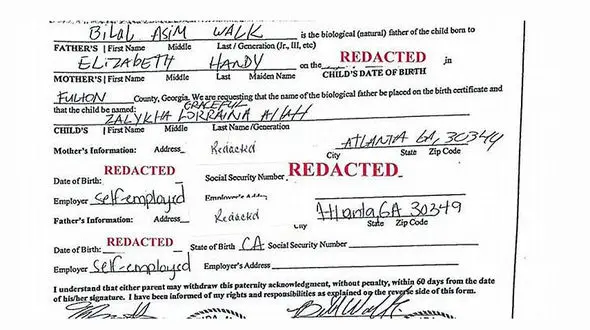 BILAL ASIM WALK is the biological (natural) father of the child born to
FATHER'S | First Name Middle Last / Generation (Jr., III, etc)
ELIZABETH HANDY on the REDACTED ,in
MOTHER'S | First Name Middle Last Maiden Name CHILD'S DATE OF BIRTH
FULTON County, Georgia. We are requesting that the name of the biological father be placed on the birth certificate and
that the child be named: GRACEFUL
ZALYKHA LORRAINA ALLAH
CHILD'S | First Name Middle Last Name/Generation
Mother's Information: Address Redacted ATLANTA GA, 30349
City State Zip Code
Date of Birth: REDACTED Social Security Number REDACTED
Employer Self-employed Employer's
Father's Information: Address Redacted Atlanta, GA 30349
City State Zip Code
Date of Birth: REDACTED State of Birth CA Social Security Number
Employer Self-employed Employer's Address
I understand that either parent may withdraw this paternity acknowledgment, without penalty, within 60 days from the date
of his/her signature. I have been informed of my rights and responsibilities as explained on the reverse side of this form.